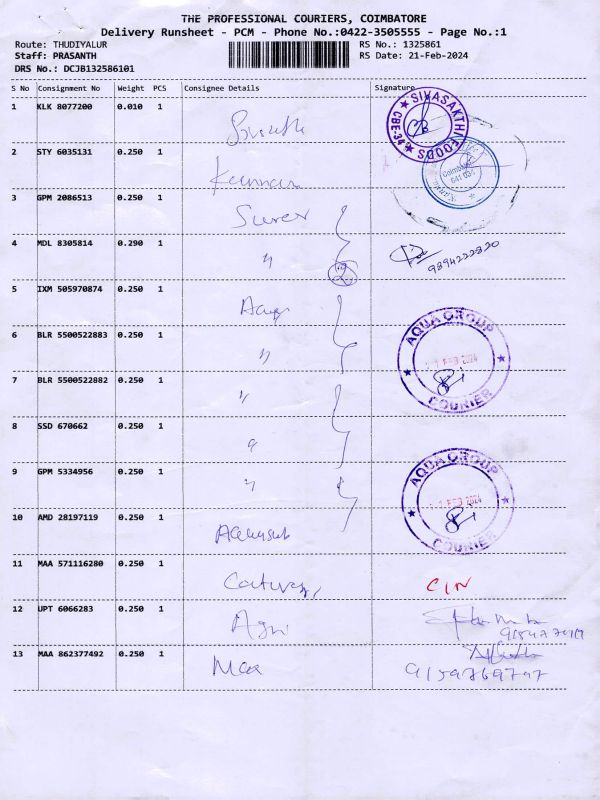 THE PROFESSIONAL COURIERS, COIMBATORE
Delivery Runsheet - PCM - Phone No.:0422-3505555 - Page No.:1
Route: THUDIYALUR RS No.: 1325861
Staff: PRASANTH RS Date: 21-Feb-2024
DRS No.: DCJB132586101
S No Consignment No Weight PCS Consignee Details Signature
1 KLK 8077200 0.010 1
SIVASAKTHI FOODS CBE-34
2 STY 6035131 0.250 1
Kumar
Coimbatore 641 034
3 GPM 2086513 0.250 1
Surer
4 MDL 8305814 0.290 1
〃
2
9894222820
5 IXM 505970874 0.250 1
6 BLR 5500522883 0.250 1
〃
AQUA GROUP FEB 2024 COURIER
7 BLR 5500522882 0.250 1
〃
8 SSD 670662 0.250 1
〃
9 GPM 5334956 0.250 1
〃
AQUA GROUP FEB 2024 COURIER
10 AMD 28197119 0.250 1
11 MAA 571116280 0.250 1
C/N
12 UPT 6066283 0.250 1
Agni
13 MAA 862377492 0.250 1
Max
9159769797